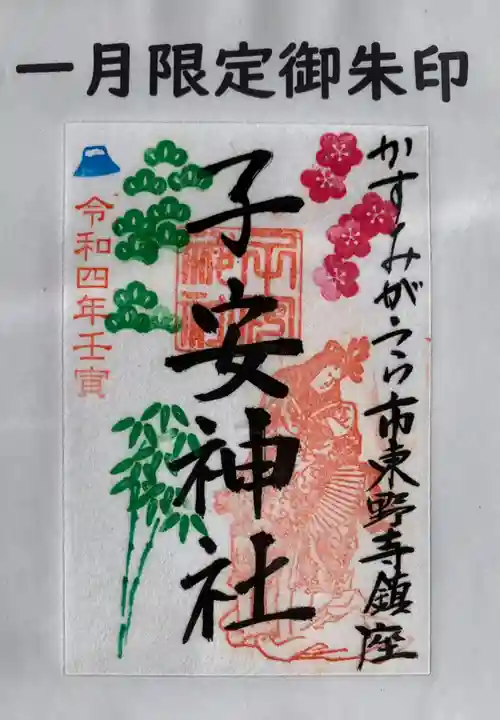 一月限定御朱印
かすみがうら市東野寺鎮座
子安神社
令和四年壬寅